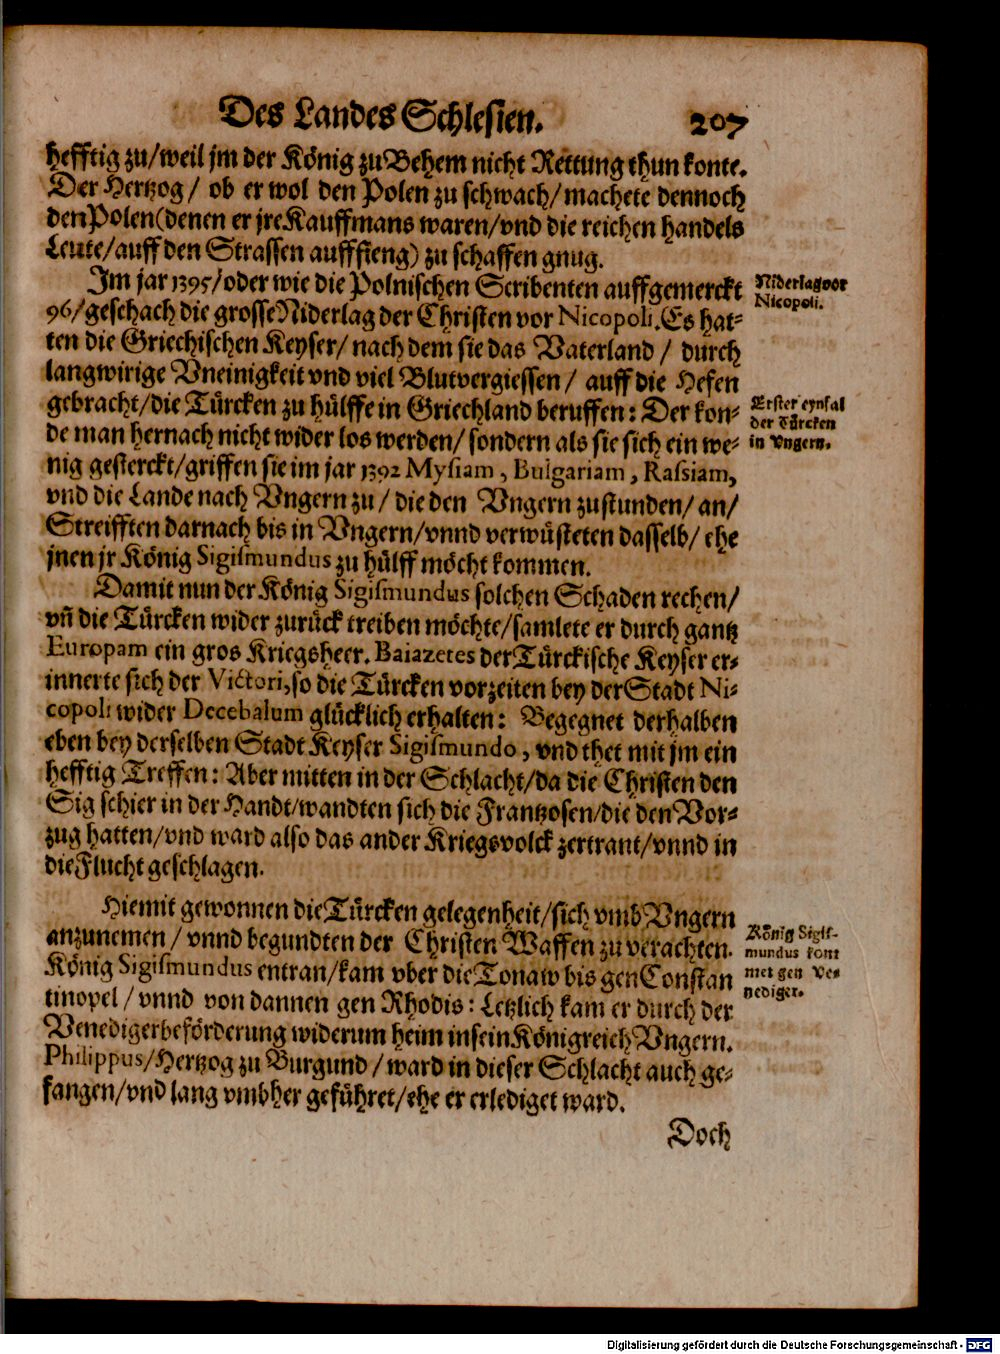 Des Landes Schlesien. 207
hefftig zu/weil jm der König zu Behem nicht Rettung thun konte.
Der Hertzog/ ob er wol den Polen zu schwach/machete dennoch
den Polen(denen er jre Kauffmans waren/vnd die reichen handels
Leute/auff den Strassen aufffieng) zu schaffen gnug.
Im jar 1395/oder wie die Polnischen Scribenten auffgemerckt
96/geschach die grosse Niderlag der Christen vor Nicopoli. Es hat-
ten die Griechischen Keyser/ nach dem sie das Vaterland / durch
langwirige Vneinigkeit vnd viel Blutvergiessen / auff die Hefen
gebracht/die Türcken zu hülffe in Griechland beruffen: Der kon-
de man hernach nicht wider los werden/ sondern als sie sich ein we-
nig gesterckt/griffen sie im jar 1392 Mysiam, Bulgariam, Raſsiam,
vnd die Lande nach Vngern zu/ die den Vngern zustunden/ an/
Streifften darnach bis in Vngern/vnnd verwüsteten dasselb/ ehe
jnen jr König Sigiſmundus zu hülff möcht kommen.
Damit nun der König Sigiſmundus solchen Schaden rechen/
vñ die Türcken wider zurück treiben möchte/samlete er durch gantz
Europam ein gros Kriegsheer. Baiazetes der Türckische Keyser er-
innerte sich der Victori, so die Türcken vorzeiten bey der Stadt Ni-
copoli wider Decebalum glücklich erhalten: Begegnet derhalben
eben bey derselben Stadt Keyser Sigiſmundo, vnd thet mit jm ein
hefftig Treffen: Aber mitten in der Schlacht/da die Christen den
Sig schier in der Handt/wandten sich die Frantzosen/die den Vor-
zug hatten/vnd ward also das ander Kriegsvolck zertrant/vnnd in
die Flucht geschlagen.
Hiemit gewonnen die Türcken gelegenheit/sich vmb Vngern
anzunemen / vnnd begundten der Christen Waffen zu verachten.
König Sigiſmundus entran/kam vber die Tonaw bis gen Constan
tinopel / vnnd von dannen gen Rhodis: Letzlich kam er durch der
Venediger beförderung widerum heim in sein Königreich Vngern.
Philippus/Hertzog zu Burgund / ward in dieser Schlacht auch ge-
fangen/vnd lang vmbher geführet/ehe er erlediget ward.
Doch
Niderlag vor
Nicopoli.
Erster eynfal
der Türcken
in Vngern.
König Sigiſ-
mundus komt
gen Ve-
nediger.
Digitalisierung gefördert durch die Deutsche Forschungsgemeinschaft - DFG